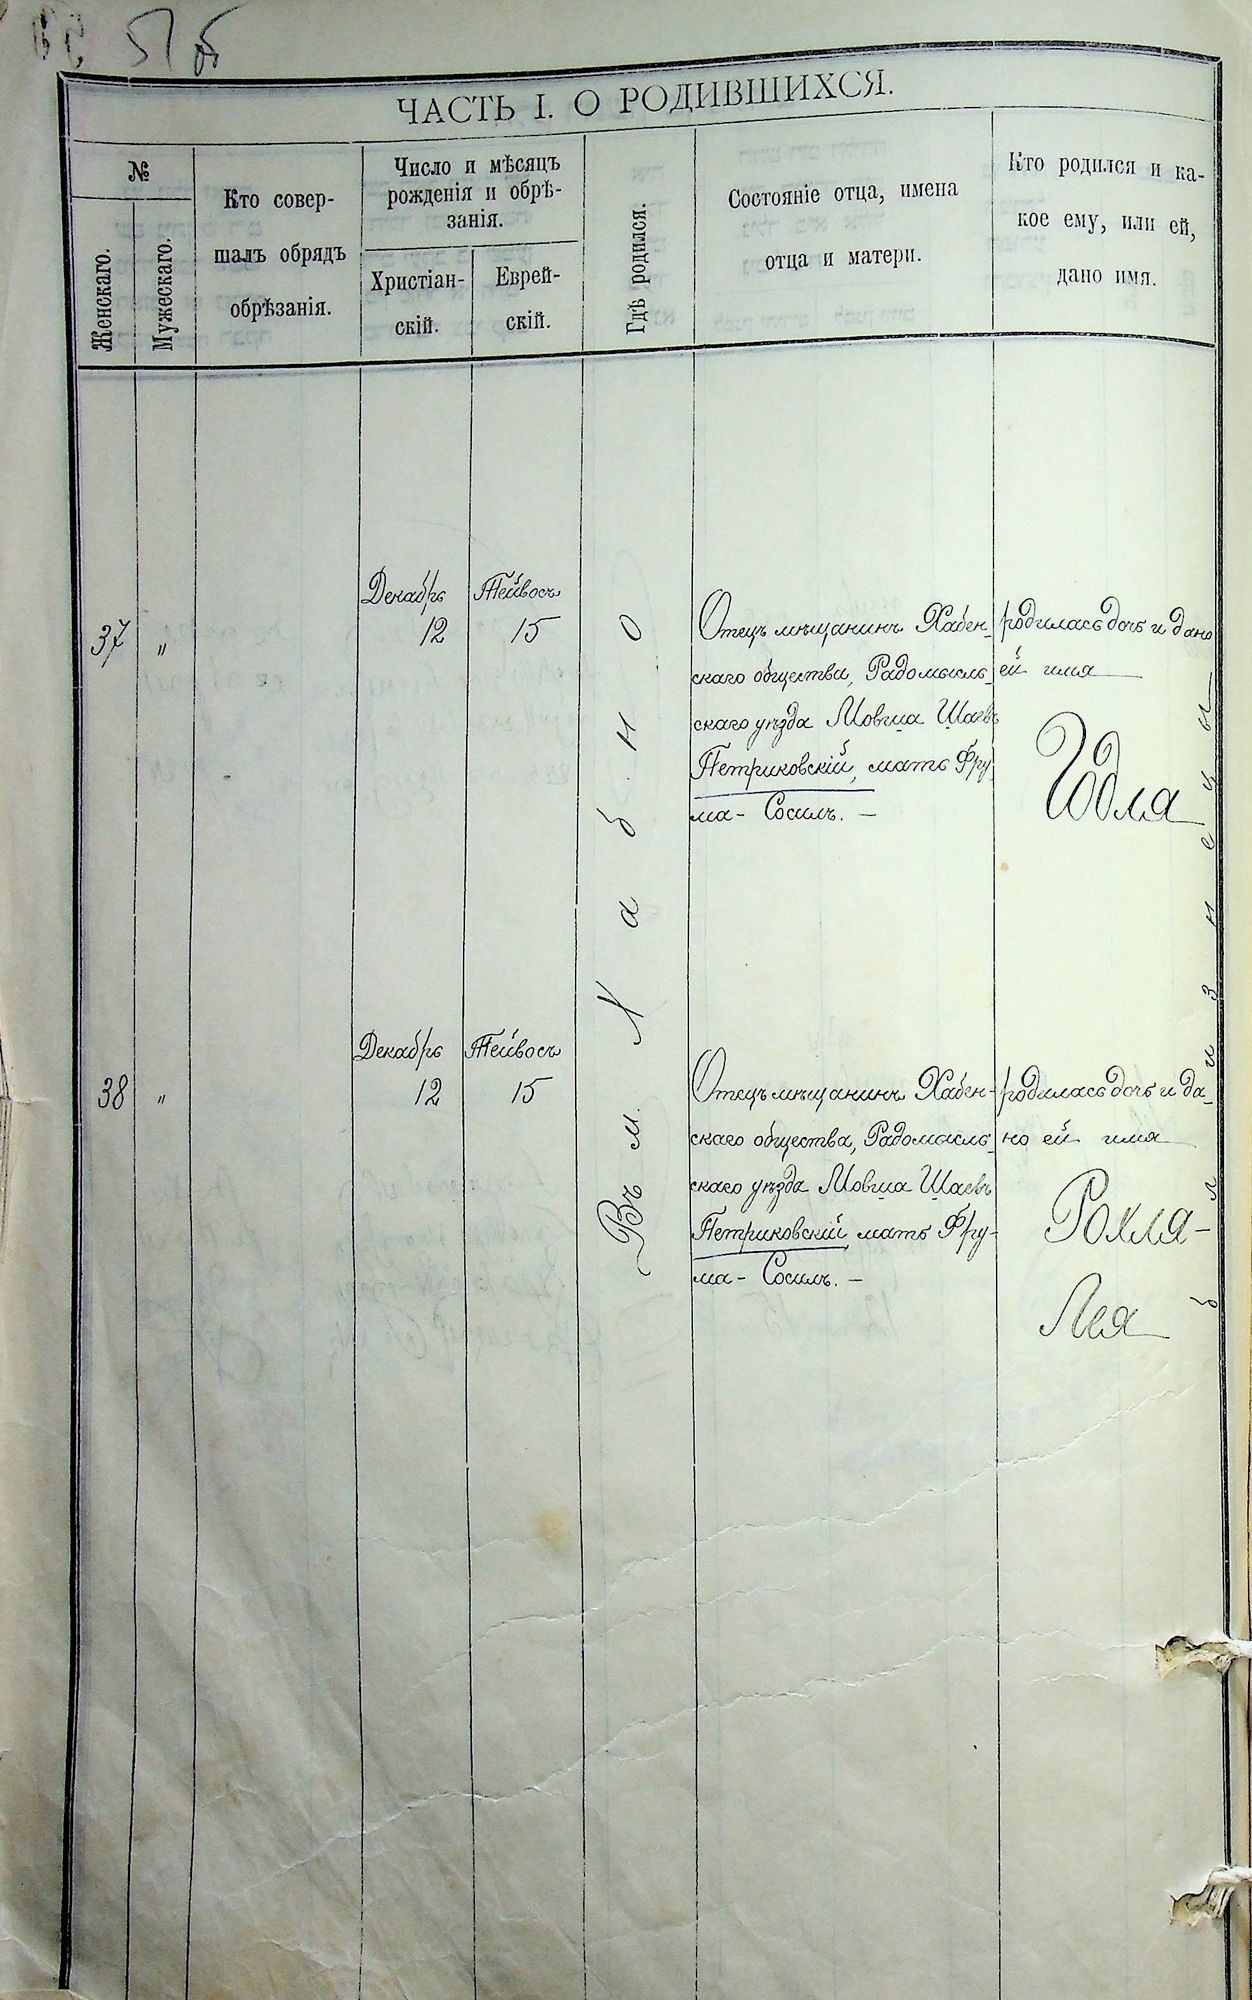 51 об
ЧАСТЬ I. О РОДИВШИХСЯ.
№
Женскаго.
Мужескаго.
Кто совер-
шалъ обрядъ
обрѣзанія.
Число и мѣсяцъ
рожденія и обрѣ-
занія.
Христіан-
скій.
Еврей-
скій.
Гдѣ родился.
Состояніе отца, имена
отца и матери.
Кто родился и ка-
кое ему, или ей,
дано имя.
37
"
Декабрь
12
Тейвосъ
15
Въ м. Хабно
Отецъ мѣщанинъ Хабен-
скаго общества, Радомысль-
скаго уѣзда Мовша Шаевъ
Петриковскій, мать Фру
ма- Сосиль. —
родилась дочь и дано
ей имя
Годля
38
"
Декабрь
12
Тейвосъ
15
Отецъ мѣщанинъ Хабен-
скаго общества, Радомысль-
скаго уѣзда Мовша Шаевъ
Петриковскій, мать Фру-
ма- Сосиль. —
родилась дочь и да-
но ей имя
Рохля-
Лея
близнецы